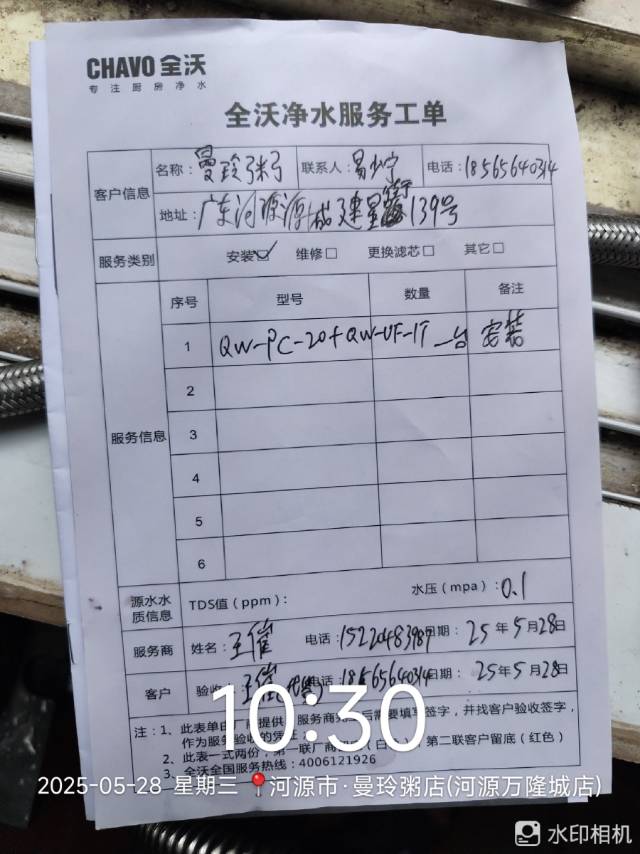 CHAVO 全沃
专注厨房净水
全沃净水服务工单
客户信息 名称：曼玲粥 联系人：易少宁 电话：18565640314
地址：广东河源源城建星路139号
服务类别 安装☑ 维修□ 更换滤芯□ 其它□
服务信息 序号 型号 数量 备注
1 QW-PC-20+QW-UF-1T 一台 安装
2
3
4
5
6
源水水质信息 TDS值（ppm）： 水压（mpa）：0.1
服务商 姓名：王催 电话：15220483987 日期：25年5月28日
客户 验收：王催 电话：18565640314 日期：25年5月28日
注：1、此表单由厂商提供，服务商完 后需要填写签字，并找客户验收签字，
作为服务验收的凭证
2、此表一式两份，第一联厂商 （白 ），第二联客户留底（红色）
3、全沃全国服务热线：4006121926
10:30
2025-05-28 星期三 河源市·曼玲粥店(河源万隆城店)
水印相机